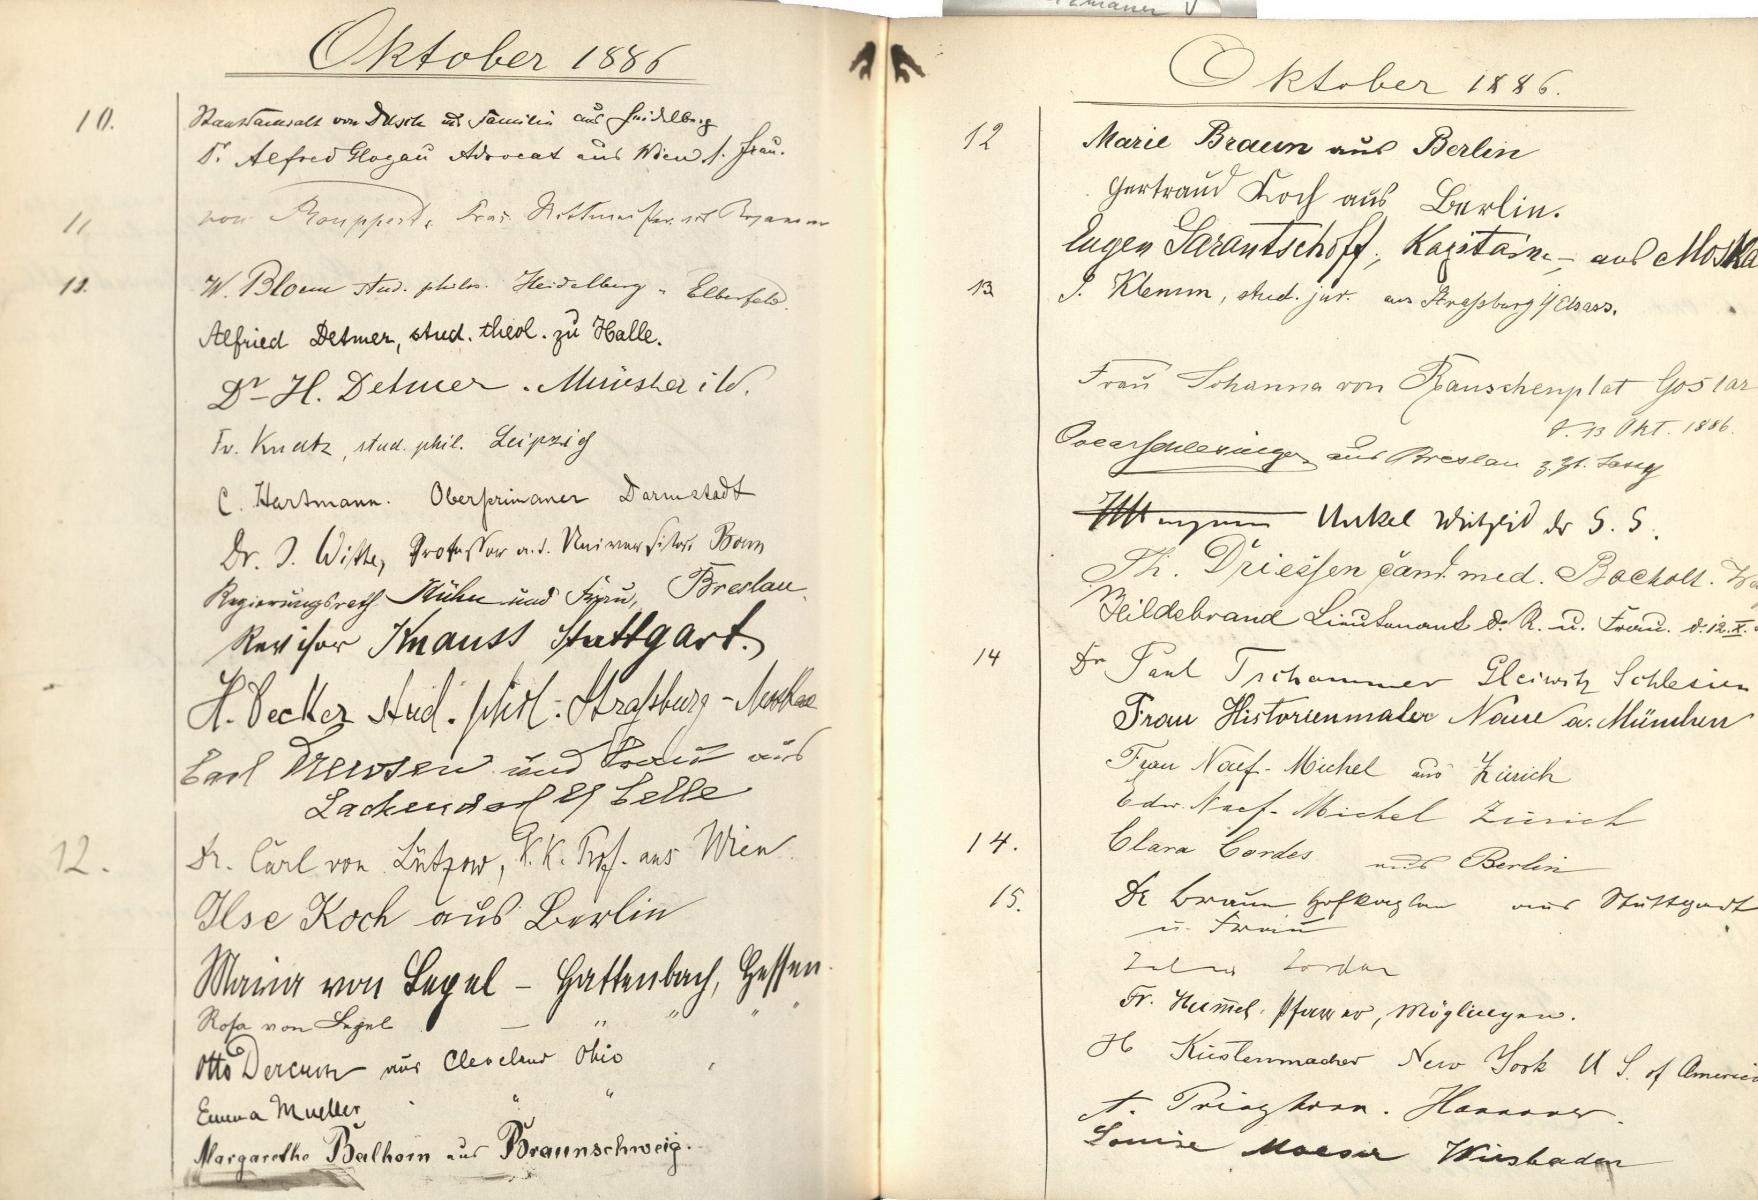 Oktober 1886
10.
Staatsanwalt von Dusch und Familie aus Heidelberg
Dr. Alfred Glogau Advocat aus Wien s. Frau.
11
von
12.
W. Bloem stud. philos. Heidelberg - Elberfeld.
Alfried Detmer, stud. theol. zu Halle.
Dr H. Detmer. Münster i/W.
Fr. Knatz, stud. phil. Leipzig
C. Hartmann. Oberprimaner Darmstadt
Dr. J. Witte, Professor a. d. Universität Bonn
Regierungsrath Kühn und Frau, Breslau.
Revisor Knauss Stuttgart.
H. Becker stud. phil. Straßburg - Moskau
Carl Drewsen und Frau aus
Lachendorf b/ Celle
12.
Dr. Carl von Lützow, K. K. Prof. aus Wien
Ilse Koch aus Berlin
Maria von Segel - Hattenbach, Hessen.
Rosa von Segel — " " " "
Otto Dercum aus Cleveland Ohio
Emma Mueller " "
Margarethe Balhorn aus Braunschweig.
Oktober 1886.
12
Marie Braun aus Berlin
Gertraud Koch aus Berlin.
Eugen Sarantschoff, Kapitain, aus Moska
13
J. Klemm, stud. jur. aus Straßburg i/ Elsass.
Frau Johanna von Rauschenplat Goslar
d. 13 Okt. 1886.
Oscar Schlesinger aus Breslau z. Zt.
Unkel Mitglied der S. S.
Th. Driessen cand. med. Bocholt.
Hildebrand Lieutenant d. R. u. Frau. d. 12. X.
14
Dr Paul Tschammer Gleiwitz Schlesien
Frau Historienmaler Naue a. München
Frau Naef-Michel aus Zürich
Edw. Naef-Michel Zürich
14.
Clara Cordes aus Berlin
15.
Dr Braun Hofkaplan aus Stuttgart
u. Frau
Jordan
Fr. Hummel, Pfarrer, Möglingen.
H Küstenmacher New York U S. of America
A. Prinzhorn. Hannover.
Louise Moeser Wiesbaden